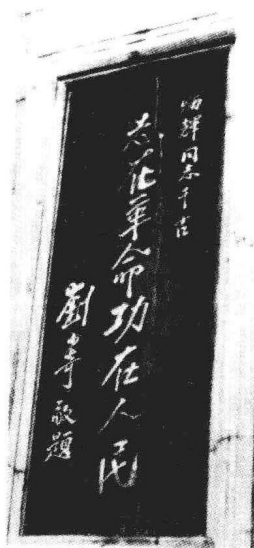 炳辉同志千古
志在革命功在人民
劉少奇敬題